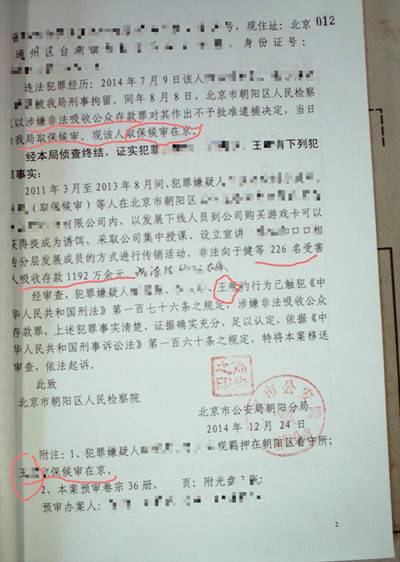 号，现住址：北京 012
通州区台湖镇 ，身份证号：
违法犯罪经历：2014年7月9日该人
被我局刑事拘留。同年8月8日，北京市朝阳区人民检察
以涉嫌非法吸收公众存款罪对其作出不予批准逮捕决定，当日
我局取保候审。现该人取保候审在京。
经本局侦查终结，证实犯罪 、王 有下列犯
事实：
2011年3月至2013年8月间，犯罪嫌疑人
（取保候审）等人在北京市朝阳区
有限公司内，以发展下线人员到公司购买游戏卡可以
获得提成为诱饵，采取公司集中授课、设立宣讲 口口相
传分层发展成员的方式进行传销活动，非法向于健等226名受害
人吸收存款1192万余元。
经审查，犯罪嫌疑人 王 的行为已触犯《中
华人民共和国刑法》第一百七十六条之规定，涉嫌非法吸收公众
存款罪，上述犯罪事实清楚，证据确实充分，足以认定，依据《中
华人民共和国刑事诉讼法》第一百六十条之规定，特将本案移送
审查，依法起诉。
此致
北京市朝阳区人民检察院
北京市公安局朝阳分局
2014年12月24日
附注：1、犯罪嫌疑人 现羁押在朝阳区看守所；
王 取保候审在京。
2、本案预审卷宗36册， 页；附光盘 张；
预审办案人：
2